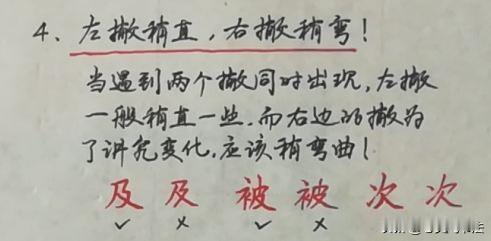 4、左撇稍直，右撇稍弯！
当遇到两个撇同时出现，左撇
一般稍直一些，而右边的撇为
了讲究变化，应该稍弯曲！
及 及 被 被 次 次
✓ × ✓ ×